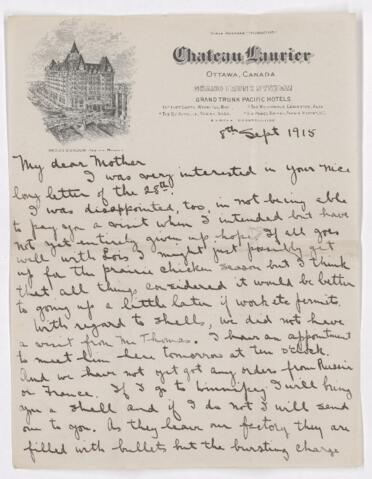 Chateau Laurier
OTTAWA, CANADA.
GRAND TRUNK SYSTEM
GRAND TRUNK PACIFIC HOTELS
8th Sept 1915
My dear Mother
I was very interested in your nice
long letter of the 28th.
I was disappointed, too, in not being able
to pay you a visit when I intended but have
not yet entirely given up hope. If all goes
well with Lois I might just possibly get
up for the prairie chicken season but I think
that all things considered it would be better
to going up a little later if work etc permits.
With regard to shells, we did not have
a visit from Mr Thomas. I have an appointment
to meet him here tomorrow at ten o'clock.
And we have not yet got any orders from Russia
or France. If I go to Winnipeg I will bring
you a shell and if I do not I will send
one to you. As they leave our factory they are
filled with bullets but the bursting charge